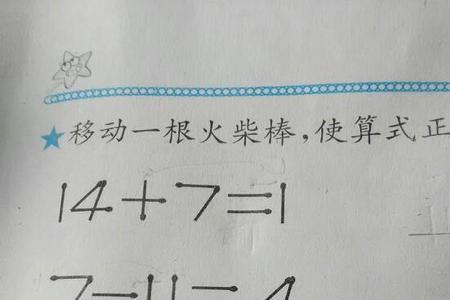 ★移动一根火柴棒,使算式正
14+7=1
7-11=4